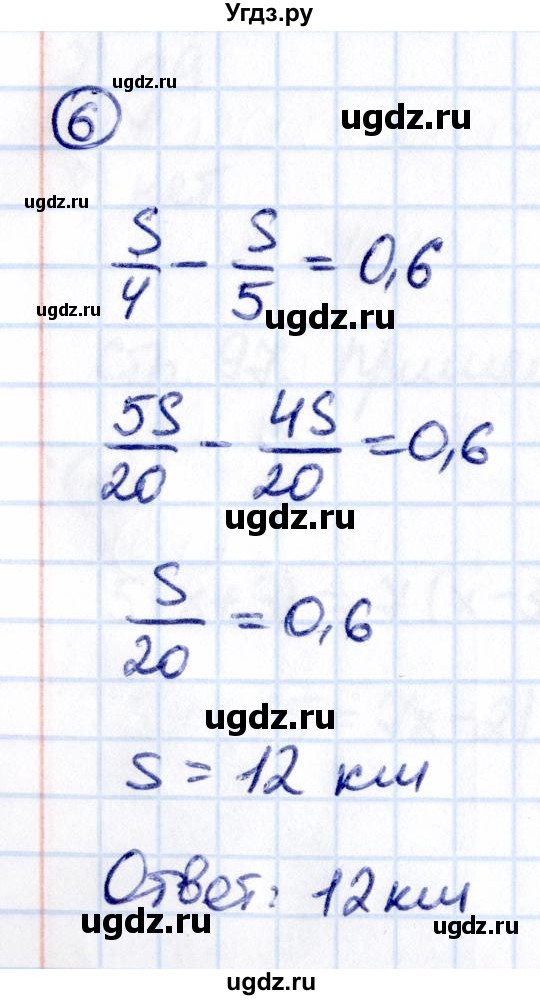 Угдз.ру
ugdz.ru
ugdz.ru
6
ugdz.ru
S/4 - S/5 = 0,6
ugdz.ru
ugdz.ru
5S/20 - 4S/20 = 0,6
ugdz.ru
S/20 = 0,6
ugdz.ru
S = 12 км
Ответ: 12 км
ugdz.ru
ugdz.ru
ugdz.ru